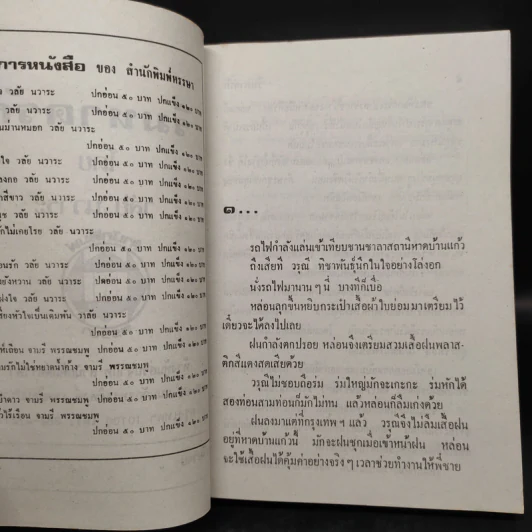 การหนังสือ ของ สำนักพิมพ์หรรษา
วลัย นวาระ ปกอ่อน ๕๐ บาท ปกแข็ง ๑๒๐ บาท
วลัย นวาระ ปกอ่อน ๕๐ บาท ปกแข็ง ๑๒๐ บาท
ม่านหมอก วลัย นวาระ
ปกอ่อน ๕๐ บาท ปกแข็ง ๑๒๐ บาท
ใจ วลัย นวาระ ปกอ่อน ๕๐ บาท ปกแข็ง ๑๒๐ บาท
วลัย นวาระ ปกอ่อน ๕๐ บาท ปกแข็ง ๑๒๐ บาท
สีขาว วลัย นวาระ ปกอ่อน ๕๐ บาท ปกแข็ง ๑๒๐ บาท
วลัย นวาระ ปกอ่อน ๕๐ บาท ปกแข็ง ๑๒๐ บาท
ไม่เคยโรย วลัย นวาระ
ปกอ่อน ๕๐ บาท ปกแข็ง ๑๒๐ บาท
รัก วลัย นวาระ ปกอ่อน ๕๐ บาท ปกแข็ง ๑๒๐ บาท
ยังหวาน วลัย นวาระ ปกอ่อน ๕๐ บาท ปกแข็ง ๑๒๐ บาท
วลัย นวาระ ปกอ่อน ๕๐ บาท ปกแข็ง ๑๒๐ บาท
หัวใจเป็นเดิมพัน วาลัย นวาระ
ปกอ่อน ๕๐ บาท ปกแข็ง ๑๒๐ บาท
จามรี พรรณชมพู ปกอ่อน ๕๐ บาท ปกแข็ง ๑๒๐ บาท
รักไม่ใช่หยาดน้ำค้าง จามรี พรรณชมพู
ปกอ่อน ๕๐ บาท ปกแข็ง ๑๒๐ บาท
จามรี พรรณชมพู ปกอ่อน ๕๐ บาท ปกแข็ง ๑๒๐ บาท
ไร้เรือน จามรี พรรณชมพู
ปกอ่อน ๕๐ บาท ปกแข็ง ๑๒๐ บาท
๑...
รถไฟกำลังแล่นเข้าเทียบชานชาลาสถานีหาดบ้านแก้ว
ถึงเสียที วรุณี ทิชาพันธุ์นึกในใจอย่างโล่งอก
นั่งรถไฟมานาน ๆ นี่ บางทีก็เบื่อ
หล่อนลุกขึ้นหยิบกระเป๋าเสื้อผ้าใบย่อมมาเตรียมไว้
เดี๋ยวจะได้ลงไปเลย
ฝนกำลังตกปรอย หล่อนจึงเตรียมสวมเสื้อฝนพลาส-
ติกสีแดงสดเสียด้วย
วรุณีไม่ชอบถือร่ม ร่มใหญ่มักจะเกะกะ ร่มพักได้
สองท่อนสามท่อนก็มักไม่ทน แล้วหล่อนก็ลืมเก่งด้วย
ฝนลงมาแต่ที่กรุงเทพ ฯ แล้ว วรุณีจึงไม่ลืมเสื้อฝน
อยู่ที่หาดบ้านแก้วนี้ มักจะฝนชุกเมื่อเข้าหน้าฝน หล่อน
จะใช้เสื้อฝนได้คุ้มค่าอย่างจริง ๆ เวลาช่วยทำงานให้พี่ชาย